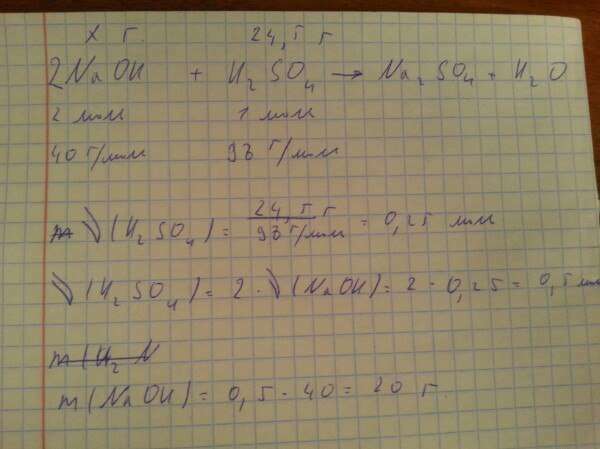 x г. 24,5 г
2NaOH + H₂SO₄ → Na₂SO₄ + H₂O
2 моль 1 моль
40 г/моль 98 г/моль
ν(H₂SO₄) = 24,5 г / 98 г/моль = 0,25 моль
ν(H₂SO₄) = 2 · ν(NaOH) = 2 · 0,25 = 0,5 моль
m(H₂ N
m(NaOH) = 0,5 · 40 = 20 г.